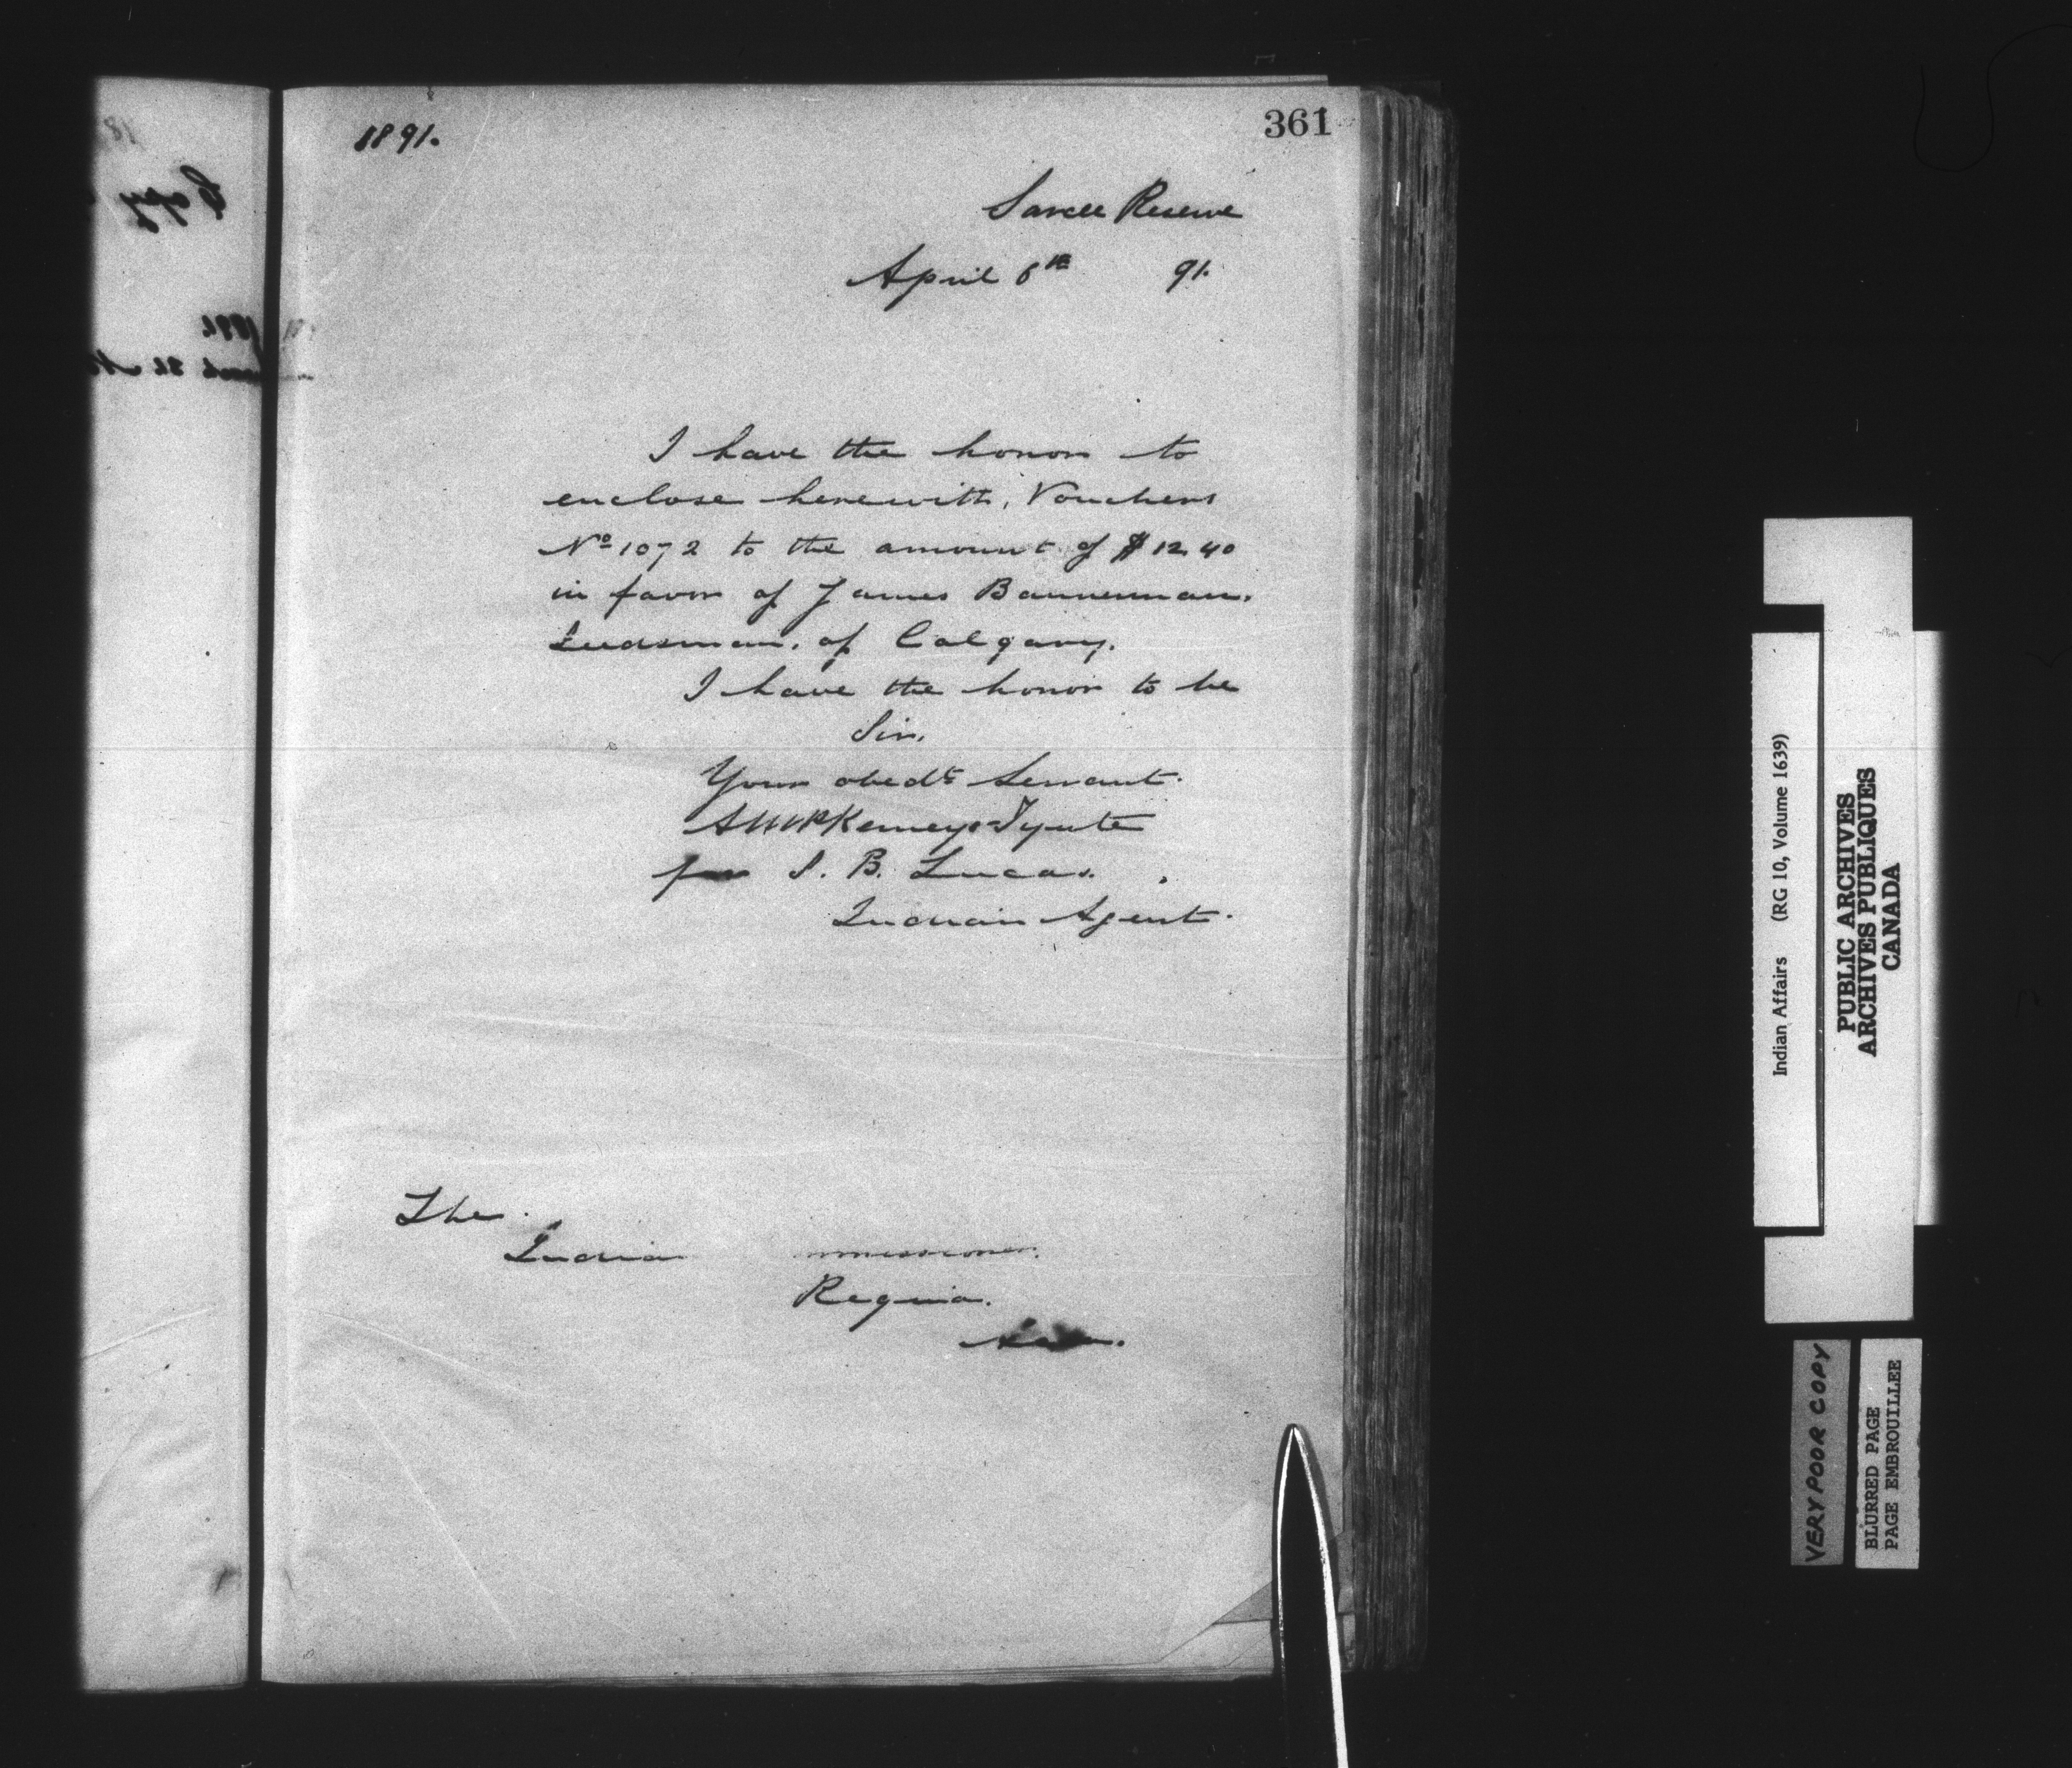 1891.
361
Sarcee Reserve
April 6th 91.
I have the honor to
enclose herewith, Vouchers
No 1072 to the amount of $12.40
in favor of James Bannerman.
Seedsman. of Calgary.
I have the honor to be
Sir.
Your obedt Servant.
AWPKemeys=Tynte
for S. B. Lucas.
Indian Agent.
The
India mmissioner.
Regina.
Indian Affairs (RG 10, Volume 1639)
PUBLIC ARCHIVES
ARCHIVES PUBLIQUES
CANADA
VERY POOR COPY
BLURRED PAGE
PAGE EMBROUILLEE